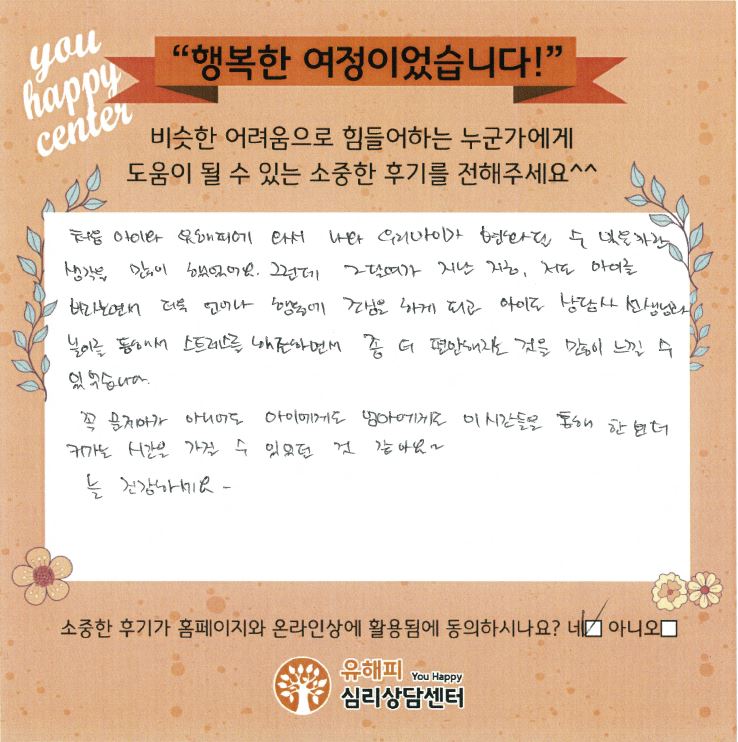 you
happy
center
“행복한 여정이었습니다!”
비슷한 어려움으로 힘들어하는 누군가에게
도움이 될 수 있는 소중한 후기를 전해주세요^^
처음 아이와 유해피에 와서 나와 우리아이가 변화될 수 있을까란
생각을 많이 했었어요. 그런데 그덧여가 지난 지금, 저도 아이를
바라보면서 더욱 언어나 행동에 조심을 하게 되고 아이도 상담사 선생님과
놀이를 통해서 스트레스를 해소하면서 좀 더 편안해지는 것을 많이 느낄 수
있었습니다.
꼭 문제아가 아니어도 아이에게도 엄마에게도 이 시간들을 통해 한 뼘 더
커가는 시간을 가질 수 있었던 것 같아요~
늘 건강하세요~
소중한 후기가 홈페이지와 온라인상에 활용됨에 동의하시나요? 네 아니오
유해피 You Happy
심리상담센터